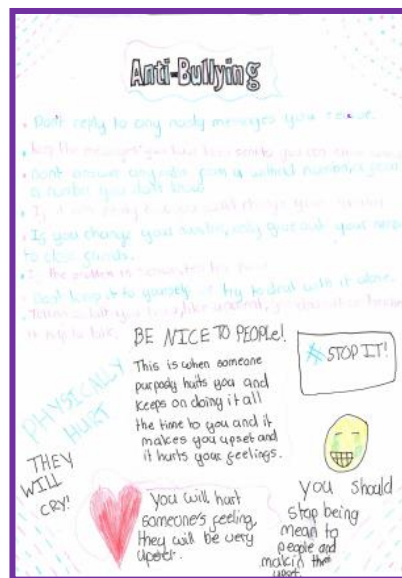 Anti-Bullying
• Don't reply to any nasty messages you receive.
• Keep the messages you have been sent so you can
• Don't answer any calls from a withheld number, or
a number you don't know
• change your number
• Is you change your number, only give out your number
to close friends.
• the problem is
• Don't keep it to yourself or try to deal with it alone.
• like
it help to talk.
BE NICE TO PEOPLE!
This is when someone
purposly hurts you and
keeps on doing it all
the time to you and it
makes you upset and
it hurts your feelings.
STOP IT!
PHYSICALLY
HURT
THEY
WILL
CRY!
you will hurt
someone's feeling,
they will be very
upset.
you should
stop being
mean to
people and
makin them
upset.